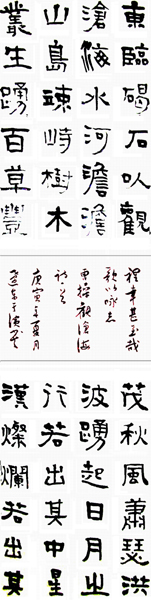 東臨碣石以觀
滄海水河澹澹
山島竦峙樹木
叢生踴百草豐
裡幸甚至哉
歌以咏志
曹操觀滄海
庚寅年夏月
茂秋風蕭瑟洪
波踴起日月之
行若出其中星
漢燦爛若出其